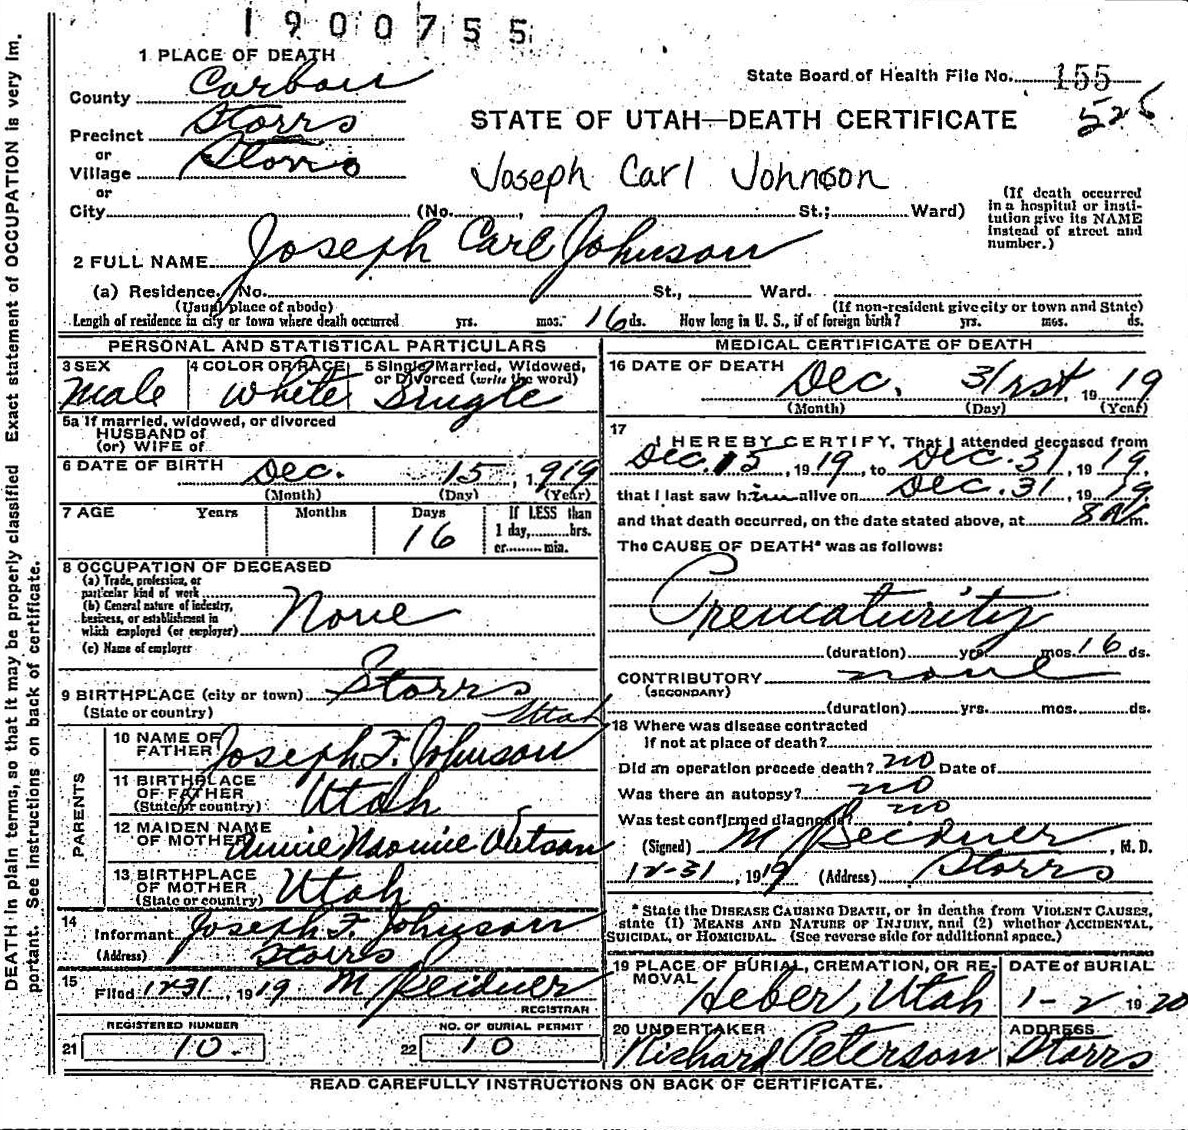 1900755
1 PLACE OF DEATH
State Board of Health File No. 155
County Carbon
525
STATE OF UTAH—DEATH CERTIFICATE
Precinct Storrs
or
Village Storrs
or
Joseph Carl Johnson
City (No. , St.; Ward)
(If death occurred
in a hospital or insti-
tution give its NAME
instead of street and
number.)
2 FULL NAME Joseph Carl Johnson
(a) Residence. No. St., Ward.
(Usual place of abode) (If non-resident give city or town and State)
Length of residence in city or town where death occurred yrs. mos. 16 ds. How long in U. S., if of foreign birth? yrs. mos. ds.
PERSONAL AND STATISTICAL PARTICULARS
3 SEX 4 COLOR OR RACE 5 Single, Married, Widowed,
or Divorced (write the word)
Male White Single
5a If married, widowed, or divorced
HUSBAND of
(or) WIFE of
6 DATE OF BIRTH Dec. 15, 1919
(Month) (Day) (Year)
7 AGE Years Months Days If LESS than
1 day, hrs.
16 or min.
8 OCCUPATION OF DECEASED
(a) Trade, profession, or
particular kind of work
(b) General nature of industry,
business, or establishment in
which employed (or employer) None
(c) Name of employer
9 BIRTHPLACE (city or town) Storrs
(State or country) Utah
PARENTS
10 NAME OF
FATHER Joseph F. Johnson
11 BIRTHPLACE
OF FATHER
(State or country) Utah
12 MAIDEN NAME
OF MOTHER Annie Naomie Watson
13 BIRTHPLACE
OF MOTHER
(State or country) Utah
14
Informant Joseph F. Johnson
(Address) Storrs
15
Filed 12-31, 1919 M Reidner
REGISTRAR
REGISTERED NUMBER NO. OF BURIAL PERMIT
21 10. 22 10
MEDICAL CERTIFICATE OF DEATH
16 DATE OF DEATH
Dec. 31rst, 1919
(Month) (Day) (Year)
17
I HEREBY CERTIFY, That I attended deceased from
Dec. 15, 1919, to Dec. 31, 1919,
that I last saw him alive on Dec. 31, 1919,
and that death occurred, on the date stated above, at 8 A m.
The CAUSE OF DEATH* was as follows:
Prematurity
(duration) yrs. mos. 16 ds.
CONTRIBUTORY none
(SECONDARY)
(duration) yrs. mos. ds.
18 Where was disease contracted
If not at place of death?
Did an operation precede death? no Date of
Was there an autopsy? no
Was test confirmed diagnosis? no
(Signed) M Reidner, M. D.
12-31, 1919 (Address) Storrs
* State the DISEASE CAUSING DEATH, or in deaths from VIOLENT CAUSES,
state (1) MEANS AND NATURE OF INJURY, and (2) whether ACCIDENTAL,
SUICIDAL, or HOMICIDAL. (See reverse side for additional space.)
19 PLACE OF BURIAL, CREMATION, OR RE-
MOVAL
Heber, Utah
DATE of BURIAL
1-2 1920
20 UNDERTAKER
Richard Peterson
ADDRESS
Storrs
READ CAREFULLY INSTRUCTIONS ON BACK OF CERTIFICATE.
DEATH in plain terms, so that it may be properly classified Exact statement of OCCUPATION is very im.
portant. See instructions on back of certificate.